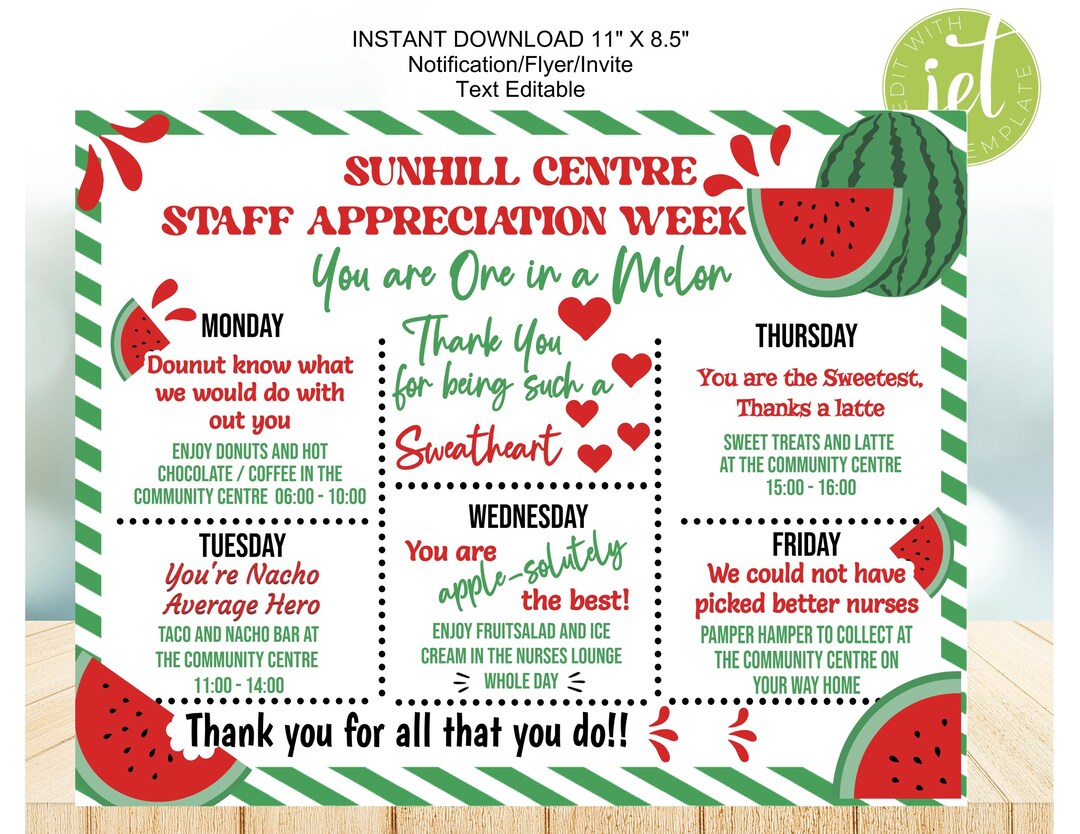 INSTANT DOWNLOAD 11" X 8.5"
Notification/Flyer/Invite
Text Editable
EDIT WITH
jet
TEMPLATE
SUNHILL CENTRE
STAFF APPRECIATION WEEK
You are One in a Melon
MONDAY
Dounut know what
we would do with
out you
ENJOY DONUTS AND HOT
CHOCOLATE / COFFEE IN THE
COMMUNITY CENTRE 06:00 - 10:00
Thank You
for being such a
Sweatheart
THURSDAY
You are the Sweetest,
Thanks a latte
SWEET TREATS AND LATTE
AT THE COMMUNITY CENTRE
15:00 - 16:00
TUESDAY
You're Nacho
Average Hero
TACO AND NACHO BAR AT
THE COMMUNITY CENTRE
11:00 - 14:00
WEDNESDAY
You are
apple-solutely
the best!
ENJOY FRUITSALAD AND ICE
CREAM IN THE NURSES LOUNGE
WHOLE DAY
FRIDAY
We could not have
picked better nurses
PAMPER HAMPER TO COLLECT AT
THE COMMUNITY CENTRE ON
YOUR WAY HOME
Thank you for all that you do!!